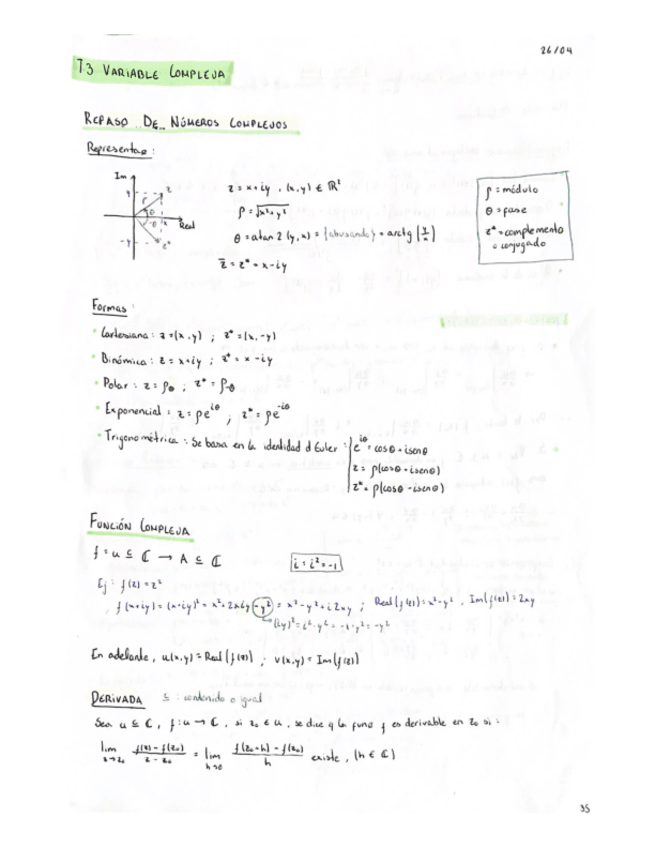 26/04
T3 VARIABLE COMPLEJA
REPASO DE NÚMEROS COMPLEJOS
Representar:
Im
y
z
ρ
θ
-θ
x
Real
-y
z*
z = x+iy , (x,y) ∈ ℝ²
ρ = √x²+y²
θ = atan2(y,x) = {abusando} = arctg (y/x)
z̄ = z* = x-iy
ρ = módulo
θ = fase
z* = complemento
o conjugado
Formas:
• Cartesiana: z=(x,y) ; z*=(x,-y)
• Binómica: z = x+iy ; z* = x-iy
• Polar: z = ρ_θ ; z* = ρ_-θ
• Exponencial: z = ρe^iθ ; z* = ρe^-iθ
• Trigonométrica: Se basa en la identidad d Euler: { e^iθ = cosθ+isenθ
z = ρ(cosθ+isenθ)
z* = ρ(cosθ-isenθ)
FUNCIÓN COMPLEJA
f: u ⊆ ℂ → A ⊆ ℂ
i: i² = -1
Ej: f(z) = z²
f(x+iy) = (x+iy)² = x²+2xiy-y² = x²-y²+i2xy ; Real(f(z)) = x²-y² , Im(f(z)) = 2xy
→(iy)² = i²·y² = -1·y² = -y²
En adelante, u(x,y) = Real(f(z)) ; v(x,y) = Im(f(z))
DERIVADA ⊆: contenido o igual
Sea u ⊆ ℂ, f: u → ℂ, si z₀ ∈ u, se dice q la func f es derivable en z₀ si:
lim z→z₀ (f(z)-f(z₀))/(z-z₀) = lim h→0 (f(z₀+h)-f(z₀))/h existe, (h ∈ ℂ)
35